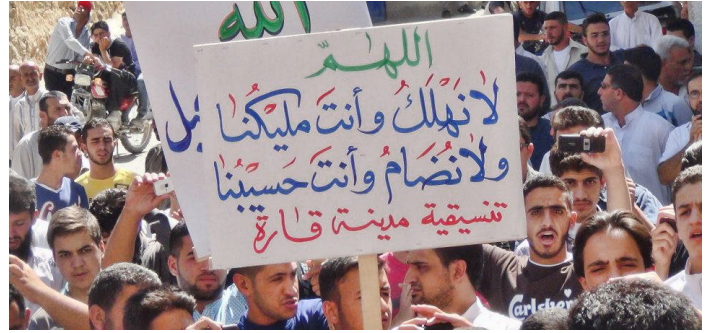 الله
بل
اللهمّ
لا نَهْلَكُ وأنتَ مليكُنا
ولا نُضَامُ وأنتَ حَسيبُنا
تنسيقية مدينة قارة
Carlsberg